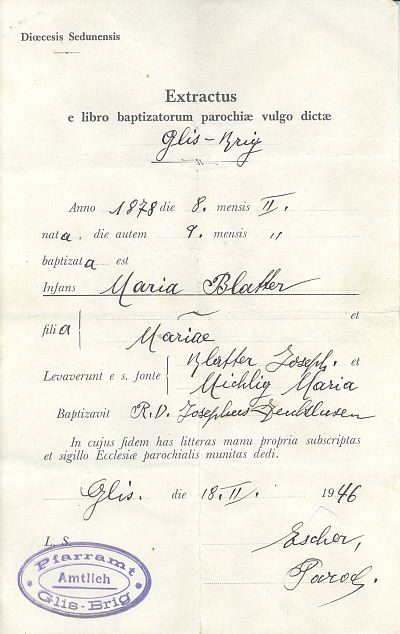 Diœcesis Sedunensis
Extractus
e libro baptizatorum parochiæ vulgo dictæ
Glis-Brig
Anno 1878 die 8. mensis II.
nata, die autem 9. mensis "
baptizata est
Infans Maria Blatter
et
filia Mariae
Levaverunt e s. fonte Blatter Joseph. et
Michlig Maria
Baptizavit R. D. Josephus
In cujus fidem has litteras manu propria subscriptas
et sigillo Ecclesiæ parochialis munitas dedi.
Glis. die 18. II. 1946
L. S. Escher,
Paroch.
Pfarramt
Amtlich
Glis-Brig